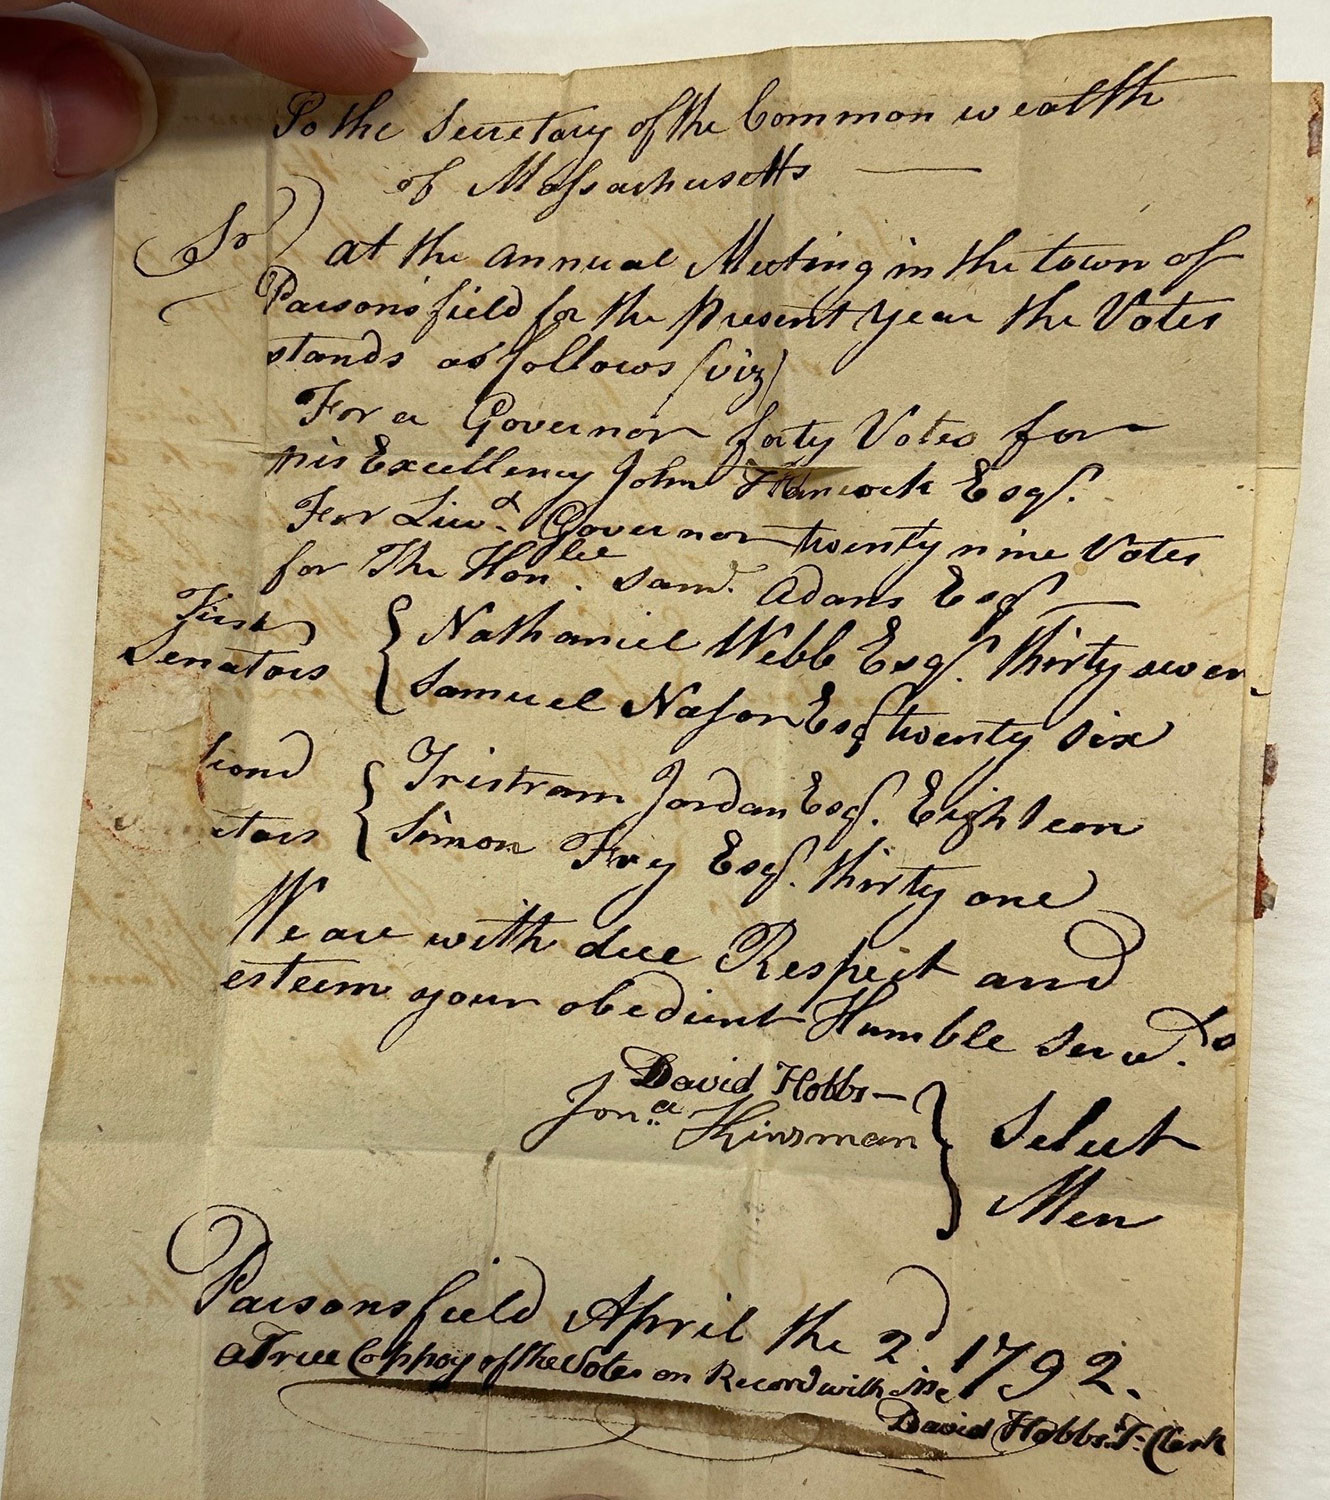 To the Secretary of the Common wealth
of Massachusetts
Sr at the annual Meeting in the town of
Parsonsfield for the present year the Votes
stands as follows (viz)
For a Governor forty Votes for
his Excellency John Hancock Esqr.
For Lieut. Governor twenty nine Votes
for The Honble. Saml. Adams Esqr
First
Senators { Nathaniel Webb Esqr. thirty seven
Samuel Nason Esqr twenty six
cond
ators { Tristram Jordan Esqr. Eighteen
Simon Fry Esqr. thirty one
We are with due Respect and
esteem your obedient Humble Servts.
David Hobbs
Jona. Kinsman } Select
Men
Parsonsfield April the 2d 1792.
a True Coppey of the Votes on Record with me
David Hobbs T. Clerk